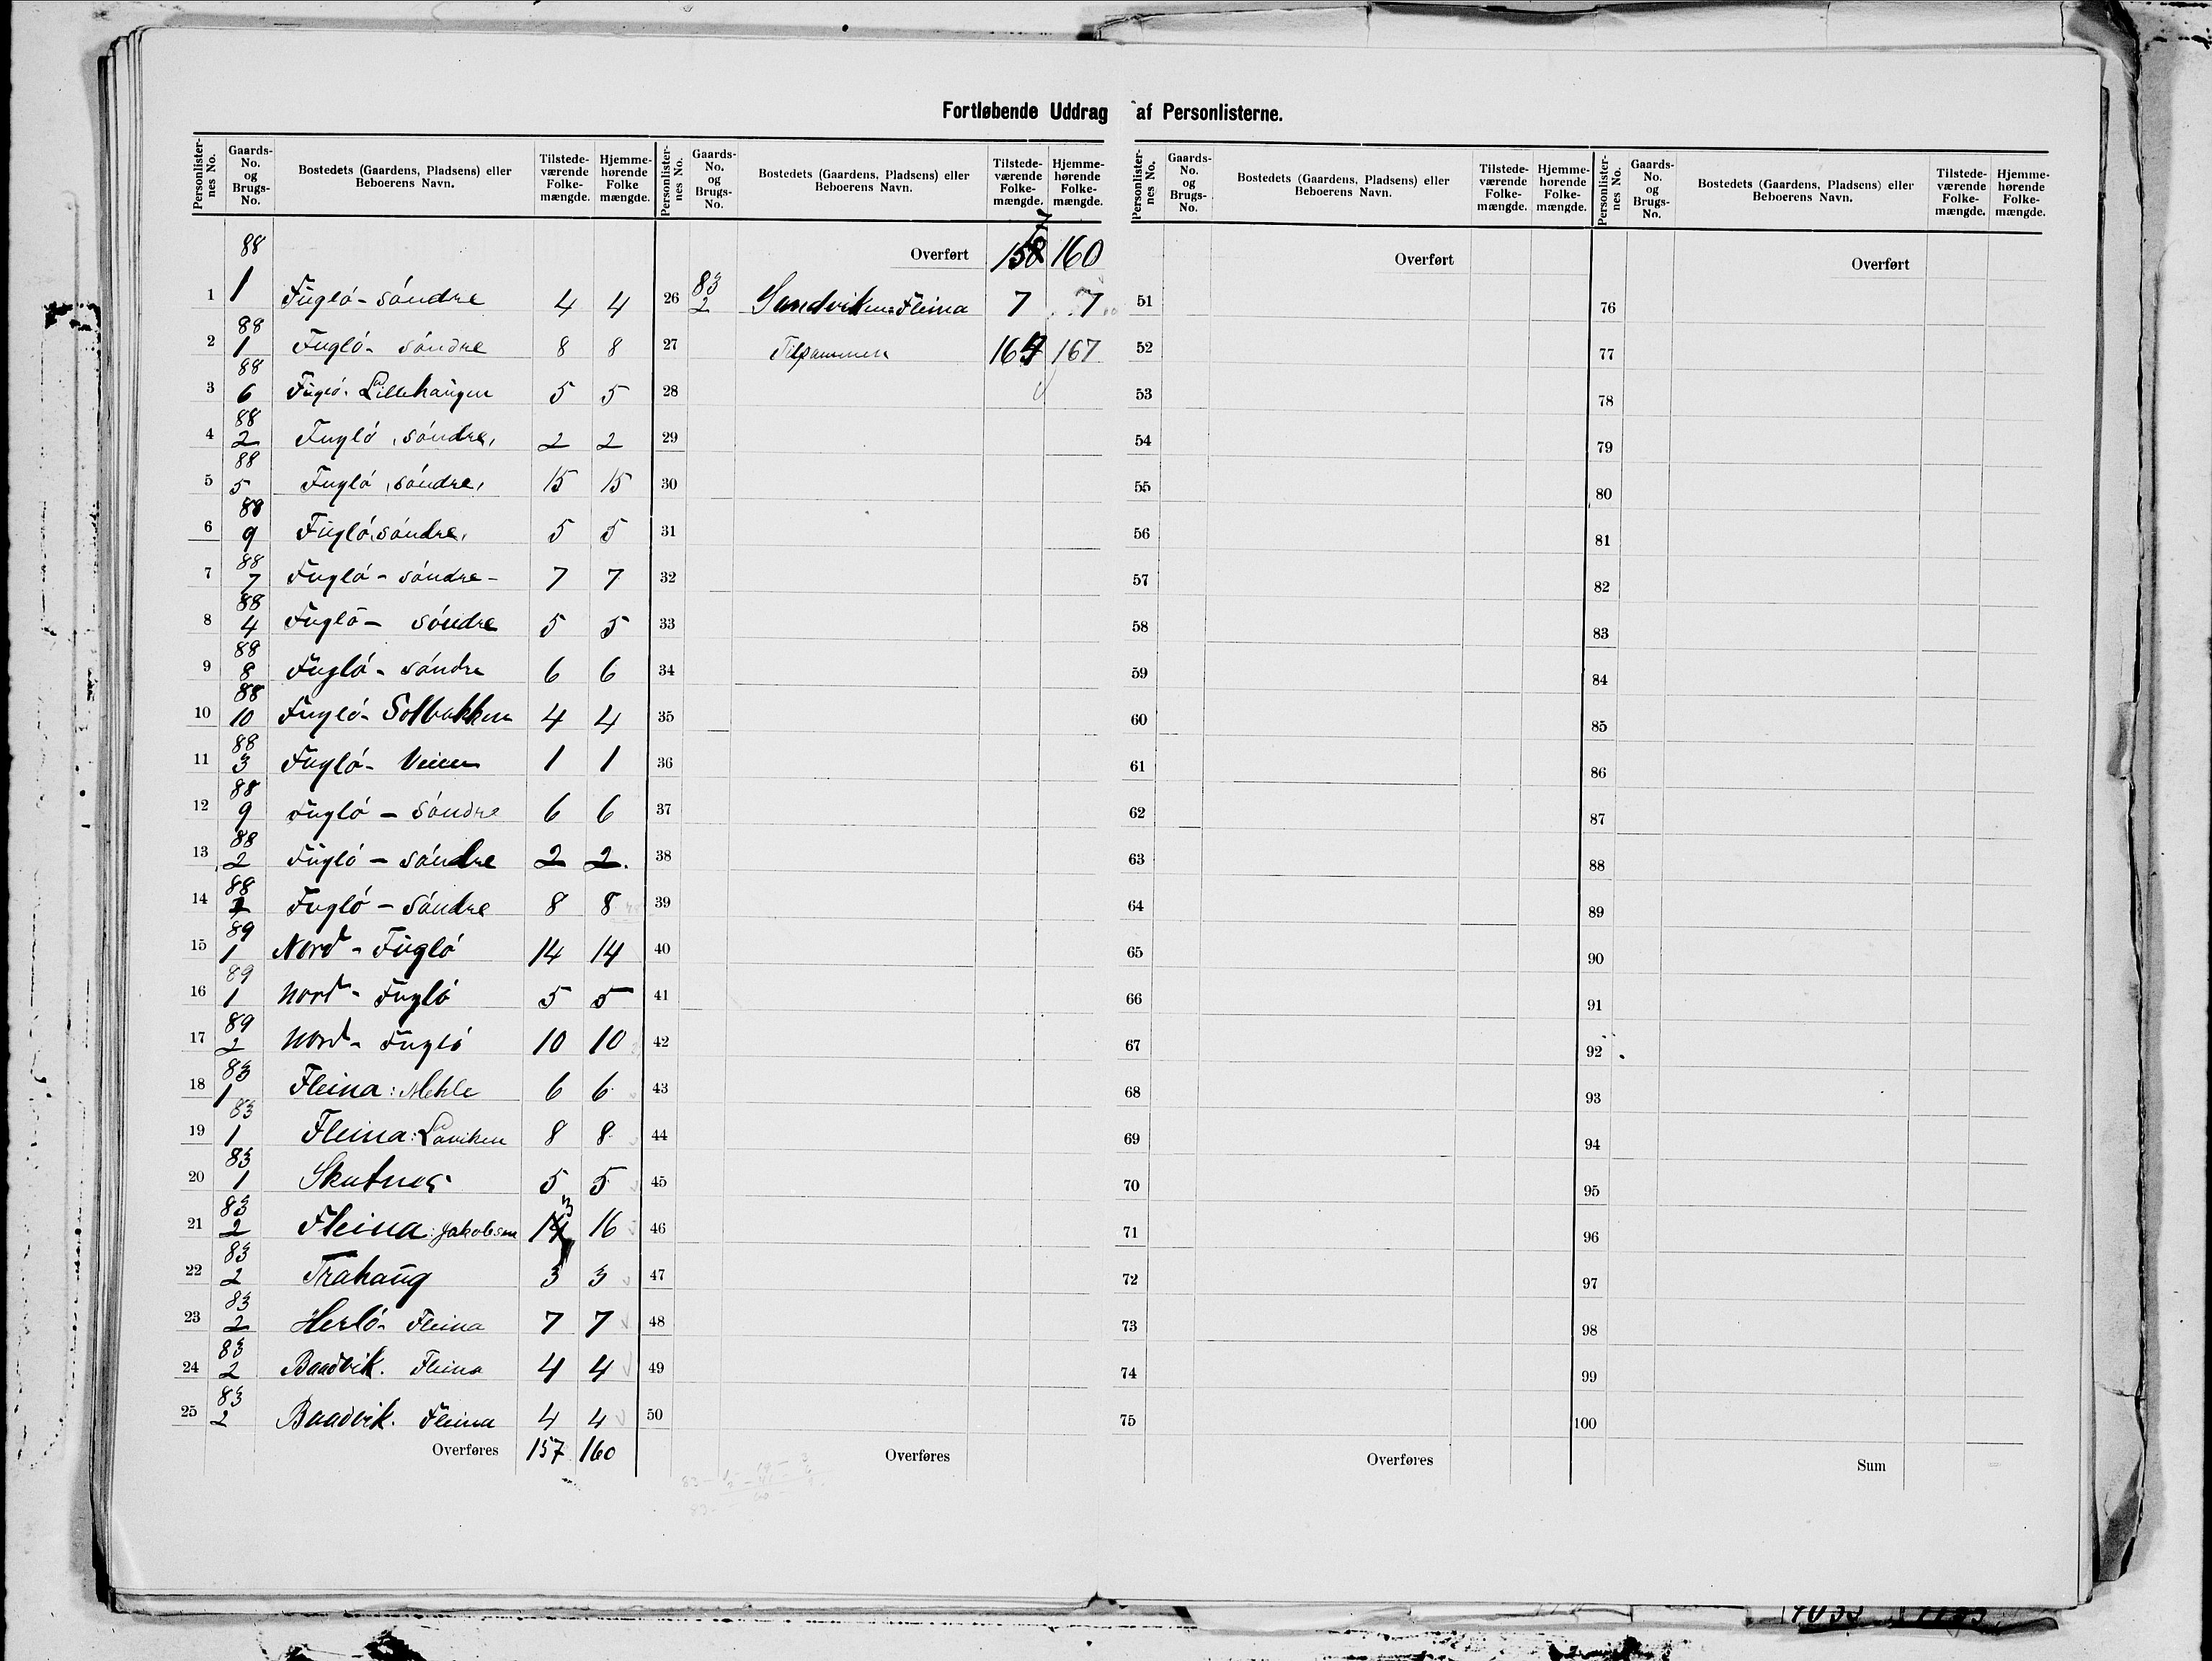 Fortløbende Uddrag af Personlisterne.
Personlister-nes No. Gaards-No. og Brugs-No. Bostedets (Gaardens, Pladsens) eller Beboerens Navn. Tilstede-værende Folke-mængde. Hjemme-hørende Folke mængde.
88
1 1 Fugló - sóndre 4 4
88
2 1 Fugló - sóndre 8 8
88
3 6 Fugló - Lillehaugen 5 5
88
4 2 Fugló, sóndre, 2 2
88
5 5 Fugló, sóndre, 15 15
88
6 9 Fugló, sóndre, 5 5
88
7 7 Fugló - sóndre - 7 7
88
8 4 Fugló - sóndre 5 5
88
9 8 Fugló - sóndre 6 6
88
10 10 Fugló - Solbakken 4 4
88
11 3 Fugló - Veien 1 1
88
12 9 Fugló - sóndre 6 6
88
13 2 Fugló - sóndre 2 2.
88
14 Fugló - sóndre 8 8
89
15 1 Nord - Fugló 14 14
89
16 1 Nord - Fugló 5 5
89
17 2 Nord - Fugló 10 10
83
18 1 Fleina: Mehle 6 6
83
19 1 Fleina: Laviken 8 8
83
20 1 Skutnes 5 5
83
21 2 Fleina: Jakobsen 13 16
83
22 2 Trahaug 3 3
83
23 2 Herló - Fleina 7 7
83
24 2 Baadvik. Fleina 4 4
83
25 2 Baadvik. Fleina 4 4
Overføres 157 160
Personlister-nes No. Gaards-No. og Brugs-No. Bostedets (Gaardens, Pladsens) eller Beboerens Navn. Tilstede-værende Folke-mængde. Hjemme-hørende Folke-mængde.
Overført 157 160
83
26 2 Sandviken Fleina 7 7
27 Tilsammen 164 167
28
29
30
31
32
33
34
35
36
37
38
39
40
41
42
43
44
45
46
47
48
49
50
Overføres
Personlister-nes No. Gaards-No. og Brugs-No. Bostedets (Gaardens, Pladsens) eller Beboerens Navn. Tilstede-værende Folke-mængde. Hjemme-hørende Folke-mængde.
Overført
51
52
53
54
55
56
57
58
59
60
61
62
63
64
65
66
67
68
69
70
71
72
73
74
75
Overføres
Personlister-nes No. Gaards-No. og Brugs-No. Bostedets (Gaardens, Pladsens) eller Beboerens Navn. Tilstede-værende Folke-mængde. Hjemme-hørende Folke-mængde.
Overført
76
77
78
79
80
81
82
83
84
85
86
87
88
89
90
91
92
93
94
95
96
97
98
99
100
Sum